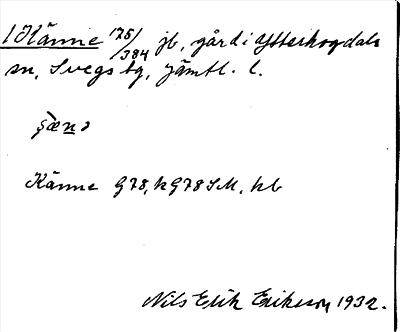 1 Känne 175/384 jb, gård i Ytterhogdals
sn, Svegs tg, Jämtl. l.
ʂæna
Känne G78, kG78SM, kb
Nils Erik Eriksson 1932.